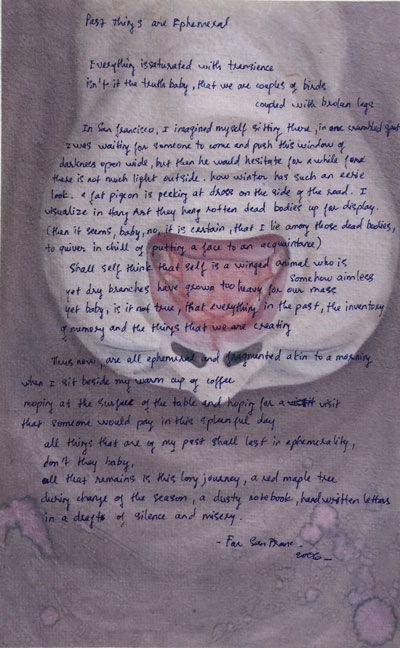 Past Things are Ephemeral
Everything is saturated with transience
isn't it the truth baby, that we are couples of birds
coupled with broken legs
In San Francisco, I imagined myself sitting there, in one crumbled spot
I was waiting for someone to come and push this window of
darkness open wide, but then he would hesitate for a while for
there is not much light outside. how winter has such an eerie
look. a fat pigeon is pecking at dross on the side of the road. I
visualize in Hang Art they hang rotten dead bodies up for display.
(then it seems, baby, no, it is certain, that I lie among those dead bodies,
to quiver in chill of putting a face to an acquaintance)
Shall self think that self is a winged animal who is
somehow aimless
yet dry branches have grown too heavy for our mass
yet baby, is it not true, that everything in the past, the inventory
of memory and the things that we are creating
Thus now are all ephemeral and fragmented akin to a morning
when I sit beside my warm cup of coffee
moping at the surface of the table and hoping for a visit
that someone would pay in this spleenful day
all things that are of my past shall last in ephemerality,
don't they baby,
all that remains is this long journey, a red maple tree
during change of the season, a dusty notebook, handwritten letters
in a draft of silence and misery.
- San Fran.
2006_